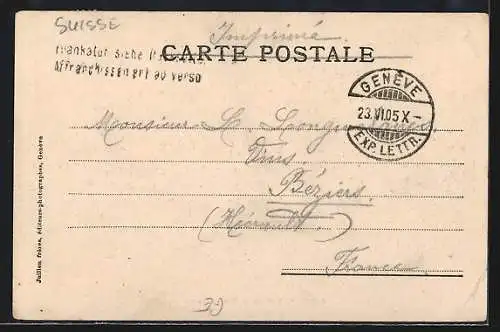 SUISSE
Imprimé
CARTE POSTALE
Frankatur siehe
Affranchissement au verso
GENÈVE
23.VI.05 X -
EXP. LETTR.
Monsieur L.
Vins
Béziers
(Hérault)
France
Jullien frères, éditeurs-photographes, Genève